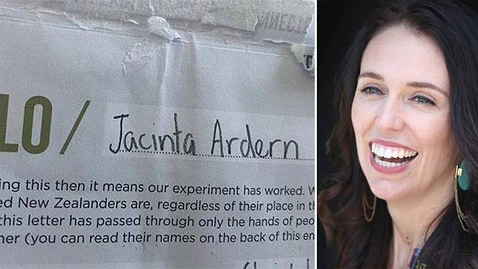 LO / Jacinta Ardern
ing this then it means our experiment has worked. W
ed New Zealanders are, regardless of their place in th
this letter has passed through only the hands of peop
her (you can read their names on the back of this en